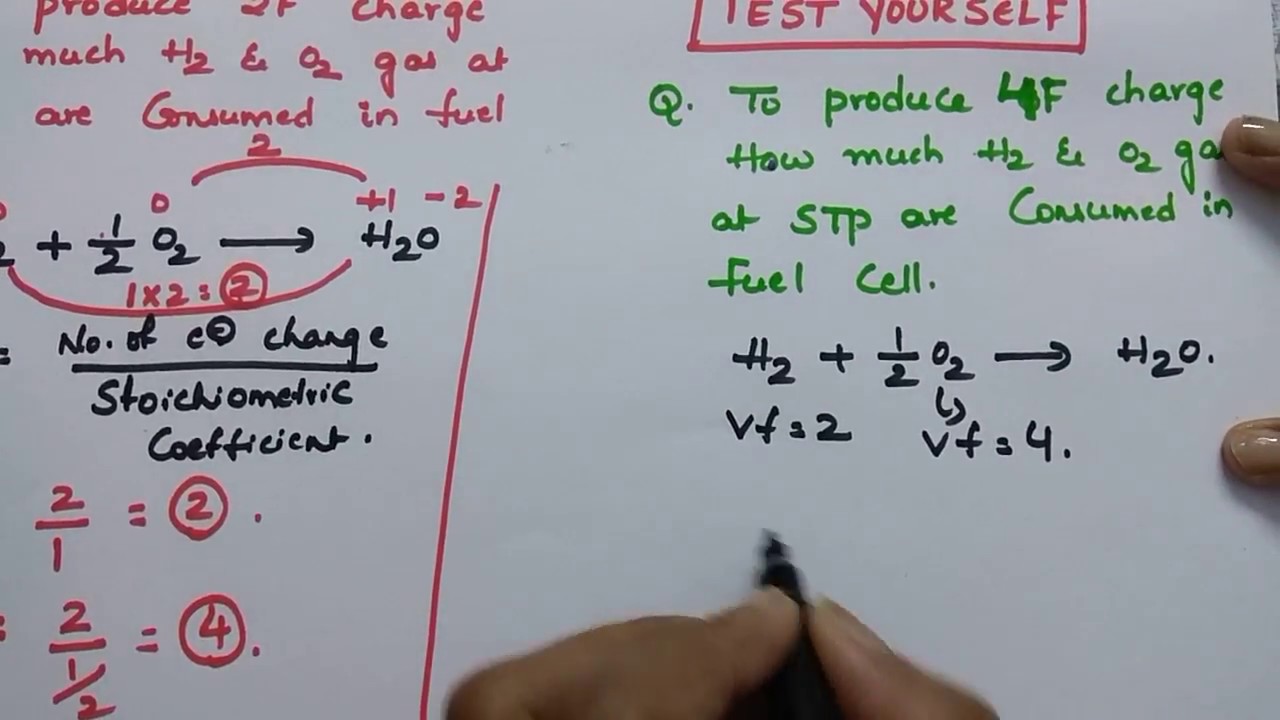 produce 2F charge
much H₂ & O₂ gas at
are Consumed in fuel
2
0 +1 -2
+ 1/2 O₂ ⟶ H₂O
1×2=②
= No. of e⊖ change
Stoichiometric
Coefficient.
2/1 = ②.
: 2/(1/2) = ④.
TEST YOURSELF
Q. To produce 4F charge
How much H₂ & O₂ ga
at STP are Consumed in
fuel Cell.
H₂ + 1/2 O₂ ⟶ H₂O.
Vf=2 Vf=4.